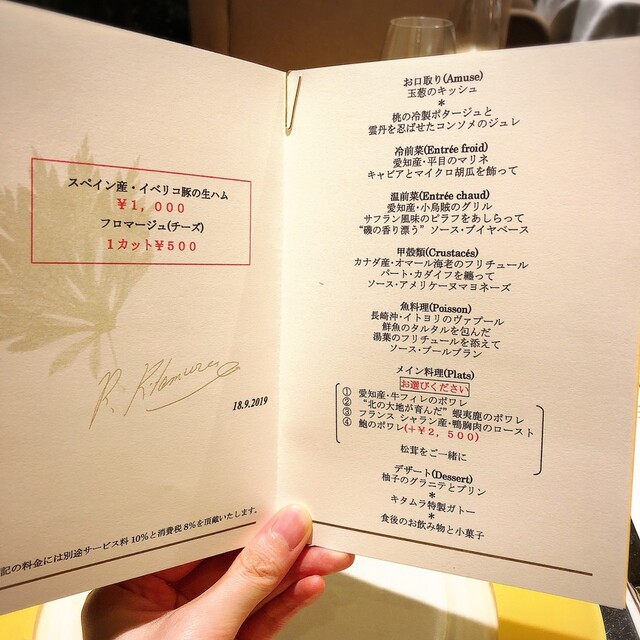 スペイン産・イベリコ豚の生ハム
￥１，０００
フロマージュ(チーズ)
１カット￥５００
R. Kitamura
18.9.2019
記の料金には別途サービス料 10%と消費税 8%を頂戴いたします。
お口取り(Amuse)
玉葱のキッシュ
＊
桃の冷製ポタージュと
雲丹を忍ばせたコンソメのジュレ
冷前菜(Entrée froid)
愛知産・平目のマリネ
キャビアとマイクロ胡瓜を飾って
温前菜(Entrée chaud)
愛知産・小烏賊のグリル
サフラン風味のピラフをあしらって
“磯の香り漂う” ソース・ブイヤベース
甲殻類(Crustacés)
カナダ産・オマール海老のフリチュール
パート・カダイフを纏って
ソース・アメリケーヌマヨネーズ
魚料理(Poisson)
長崎沖・イトヨリのヴァプール
鮮魚のタルタルを包んだ
湯葉のフリチュールを添えて
ソース・ブールブラン
メイン料理(Plats)
お選びください
① 愛知産・牛フィレのポワレ
② “北の大地が育んだ” 蝦夷鹿のポワレ
③ フランス シャラン産・鴨胸肉のロースト
④ 鮑のポワレ(+￥２，５００)
松茸をご一緒に
デザート(Dessert)
柚子のグラニテとプリン
＊
キタムラ特製ガトー
＊
食後のお飲み物と小菓子